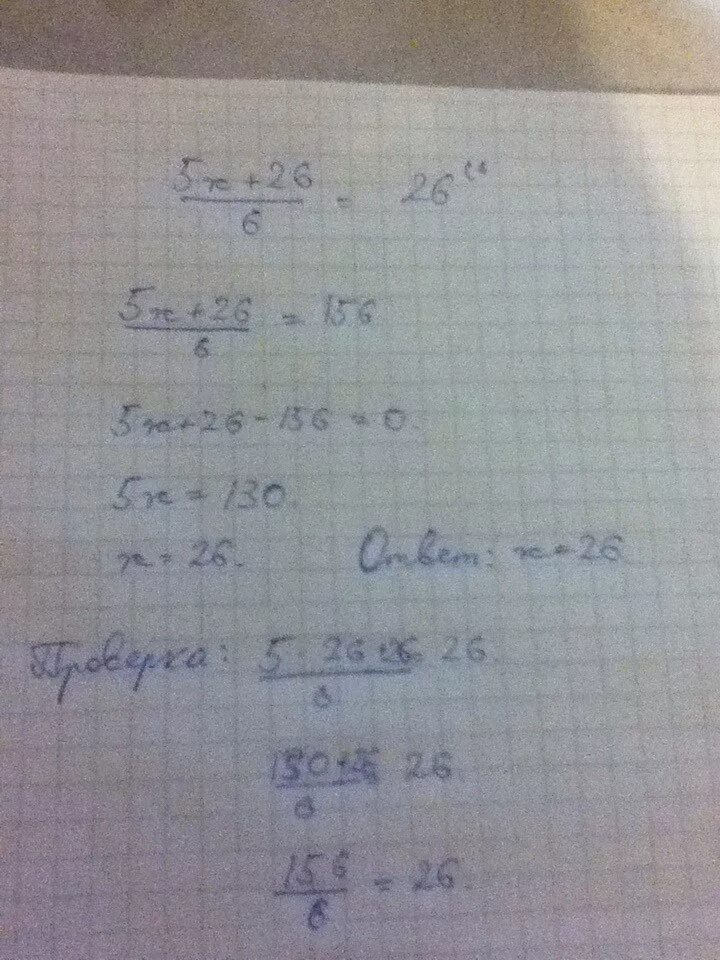 5x+26/6 = 26
5x+26/6 = 156
5x+26-156=0.
5x=130.
x=26. Ответ: x=26
Проверка: 5·26+26/6 = 26.
130+26/6 = 26
156/6 = 26.